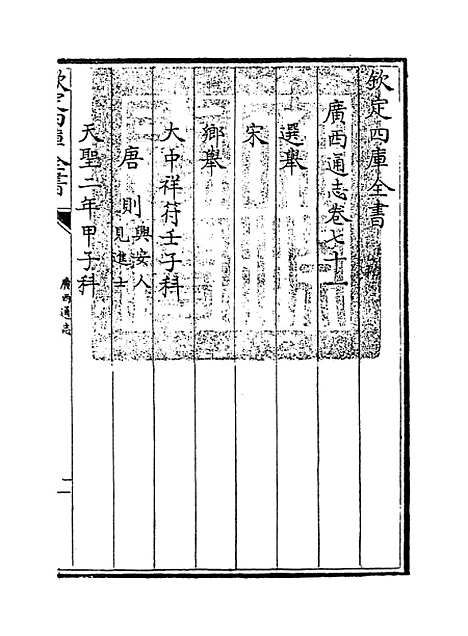 欽定四庫全書
廣西通志卷七十一
選舉
宋
鄉舉
大中祥符壬子科
唐則 興安人 見進士
天聖二年甲子科
欽定四庫全書
廣西通志
二